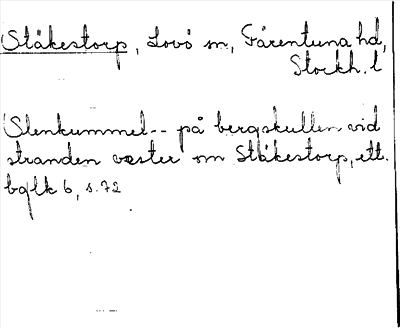 Ståkestorp, Lovö sn, Färentuna hd,
Stockh. l
Stenkummel -- på bergskullen vid
stranden väster om Ståkestorp, ett.
bglk 6, s. 72